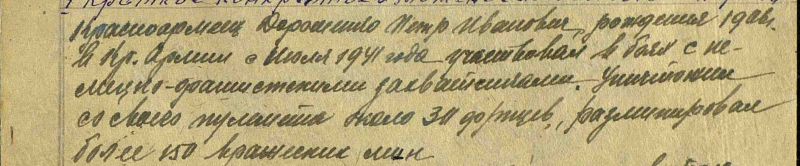 Красноармеец Дорошенко Петр Иванович, рождения 1908г.
В Кр. Армии с июля 1941 года участвовал в боях с не-
мецко-фашистскими захватчиками. Уничтожил
со своего пулемета около 30 фрицев, разминировал
более 150 вражеских мин